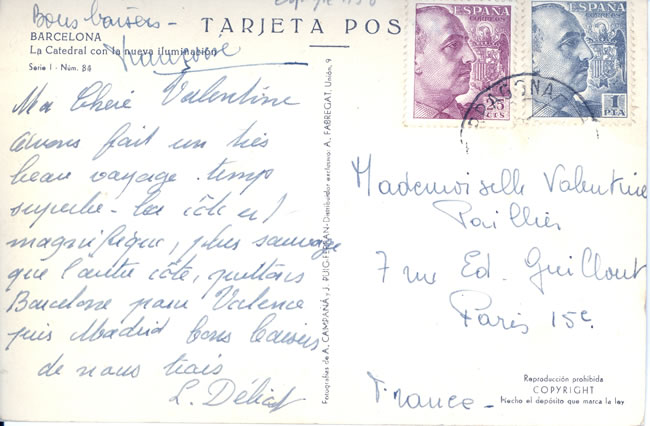 Bons baisers -
TARJETA POS
BARCELONA
La Catedral con la nueva iluminación
Serie I - Núm. 84
Ma Chère Valentine
avons fait un très
beau voyage. temps
superbe - la côte est
magnifique, plus sauvage
que l'autre côte, quittons
Barcelone pour Valence
puis Madrid bons baisers
de nous trois
L. Délicat
Fotografías de A. CAMPAÑÁ y J. PUIG-FERRAN - Distribuidor exclusivo: A. FABREGAT, Unión, 9
ESPAÑA
CORREOS
25
CTS
ESPAÑA
CORREOS
1
PTA
Mademoiselle Valentine
Paillier
7 rue Ed. Guillout
Paris 15e
France -
Reproducción prohibida
COPYRIGHT
Hecho el depósito que marca la ley